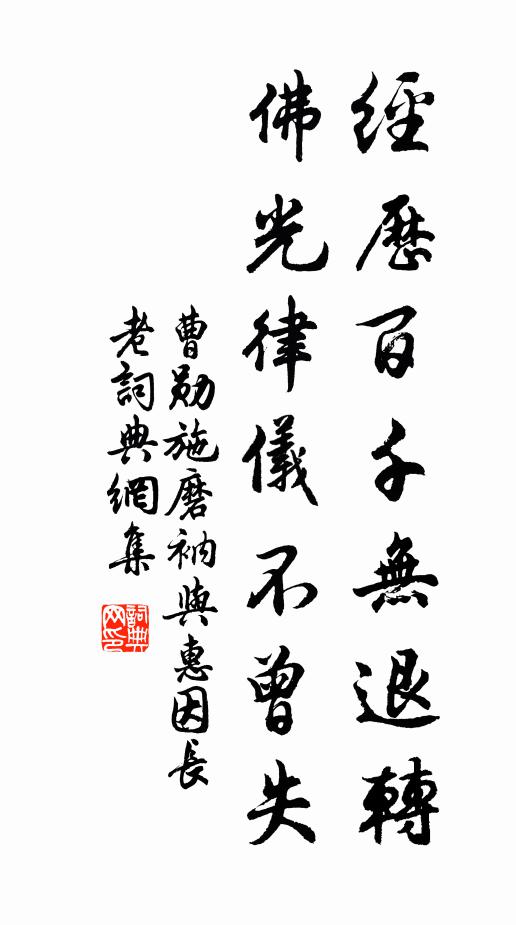 經歷百千無退轉
佛光律儀不曾失
曹勛施磨衲與惠因長
老詞典網集
詞典網印